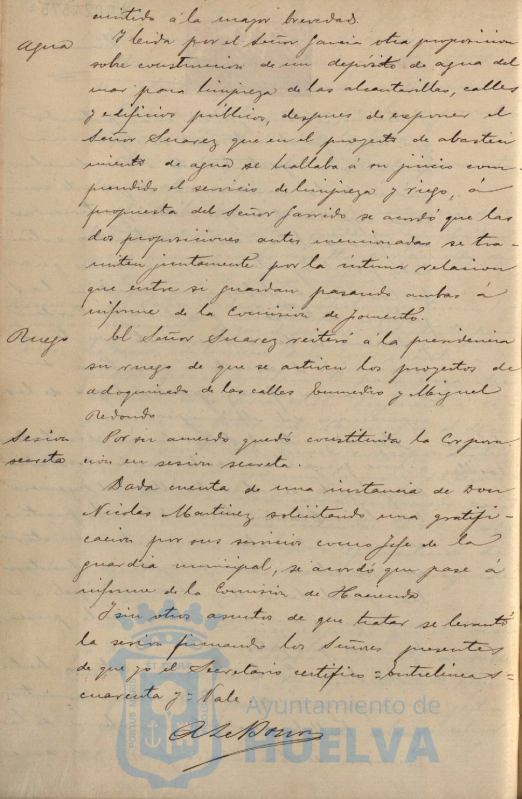 mitido á la mayor brevedad.
Agua
Y leida por el Señor Garcia otra proposicion
sobre construccion de un deposito de agua del
mar para limpieza de las alcantarillas, calles
y edificios públicos, despues de exponer el
Señor Suarez que en el proyecto de abasteci
miento de agua se hallaba á su juicio com-
prendido el servicio de limpieza y riego, á
propuesta del Señor Garrido se acordó que las
dos proposiciones antes mencionadas se tra-
miten juntamente por la íntima relacion
que entre si guardan pasando ambas á
informe de la Comision de Fomento.
Ruego
El Señor Suarez reiteró á la presidencia
su ruego de que se activen los proyectos de
adoquinado de las calles Enmedio y Miguel
Redondo
Sesion
secreta
Por su acuerdo quedó constituida la Corpora
cion en sesion secreta.
Dada cuenta de una instancia de Don
Nicolas Martinez solicitando una gratifi-
cacion por sus servicios como Jefe de la
guardia municipal, se acordó que pase á
informe de la Comision de Hacienda
Y sin otros asuntos de que tratar se levantó
la sesion firmando los Señores presentes
de que yo el Secretario certifico = Entrelineas =
cuarenta y = Vale
Ayuntamiento de
HUELVA
PORTUS